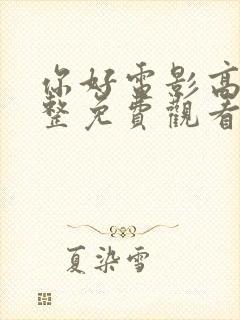 你好雷影高
整免費觀看
夏染雪